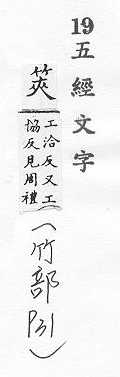 19五經文字
筴
工洽反又工
協反見周禮
(竹部P31)